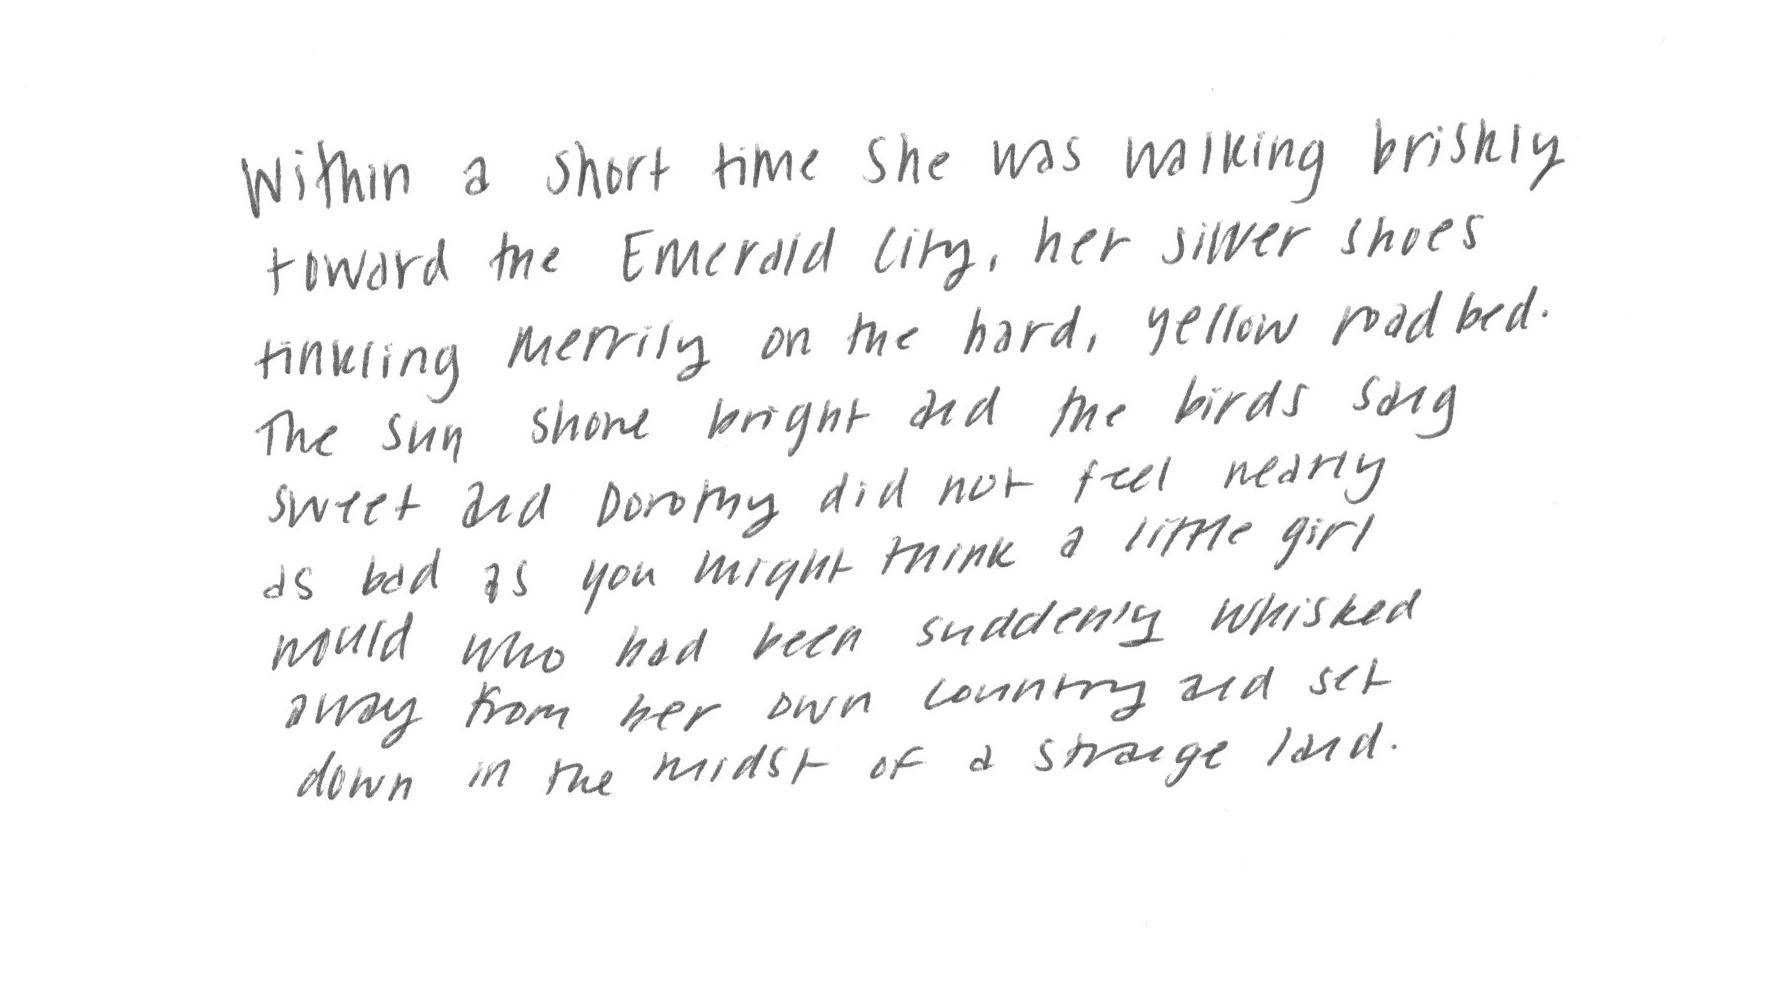 Within a short time she was walking briskly
toward the Emerald City, her silver shoes
tinkling merrily on the hard, yellow road bed.
The sun shone bright and the birds sang
sweet and Dorothy did not feel nearly
as bad as you might think a little girl
would who had been suddenly whisked
away from her own country and set
down in the midst of a strange land.